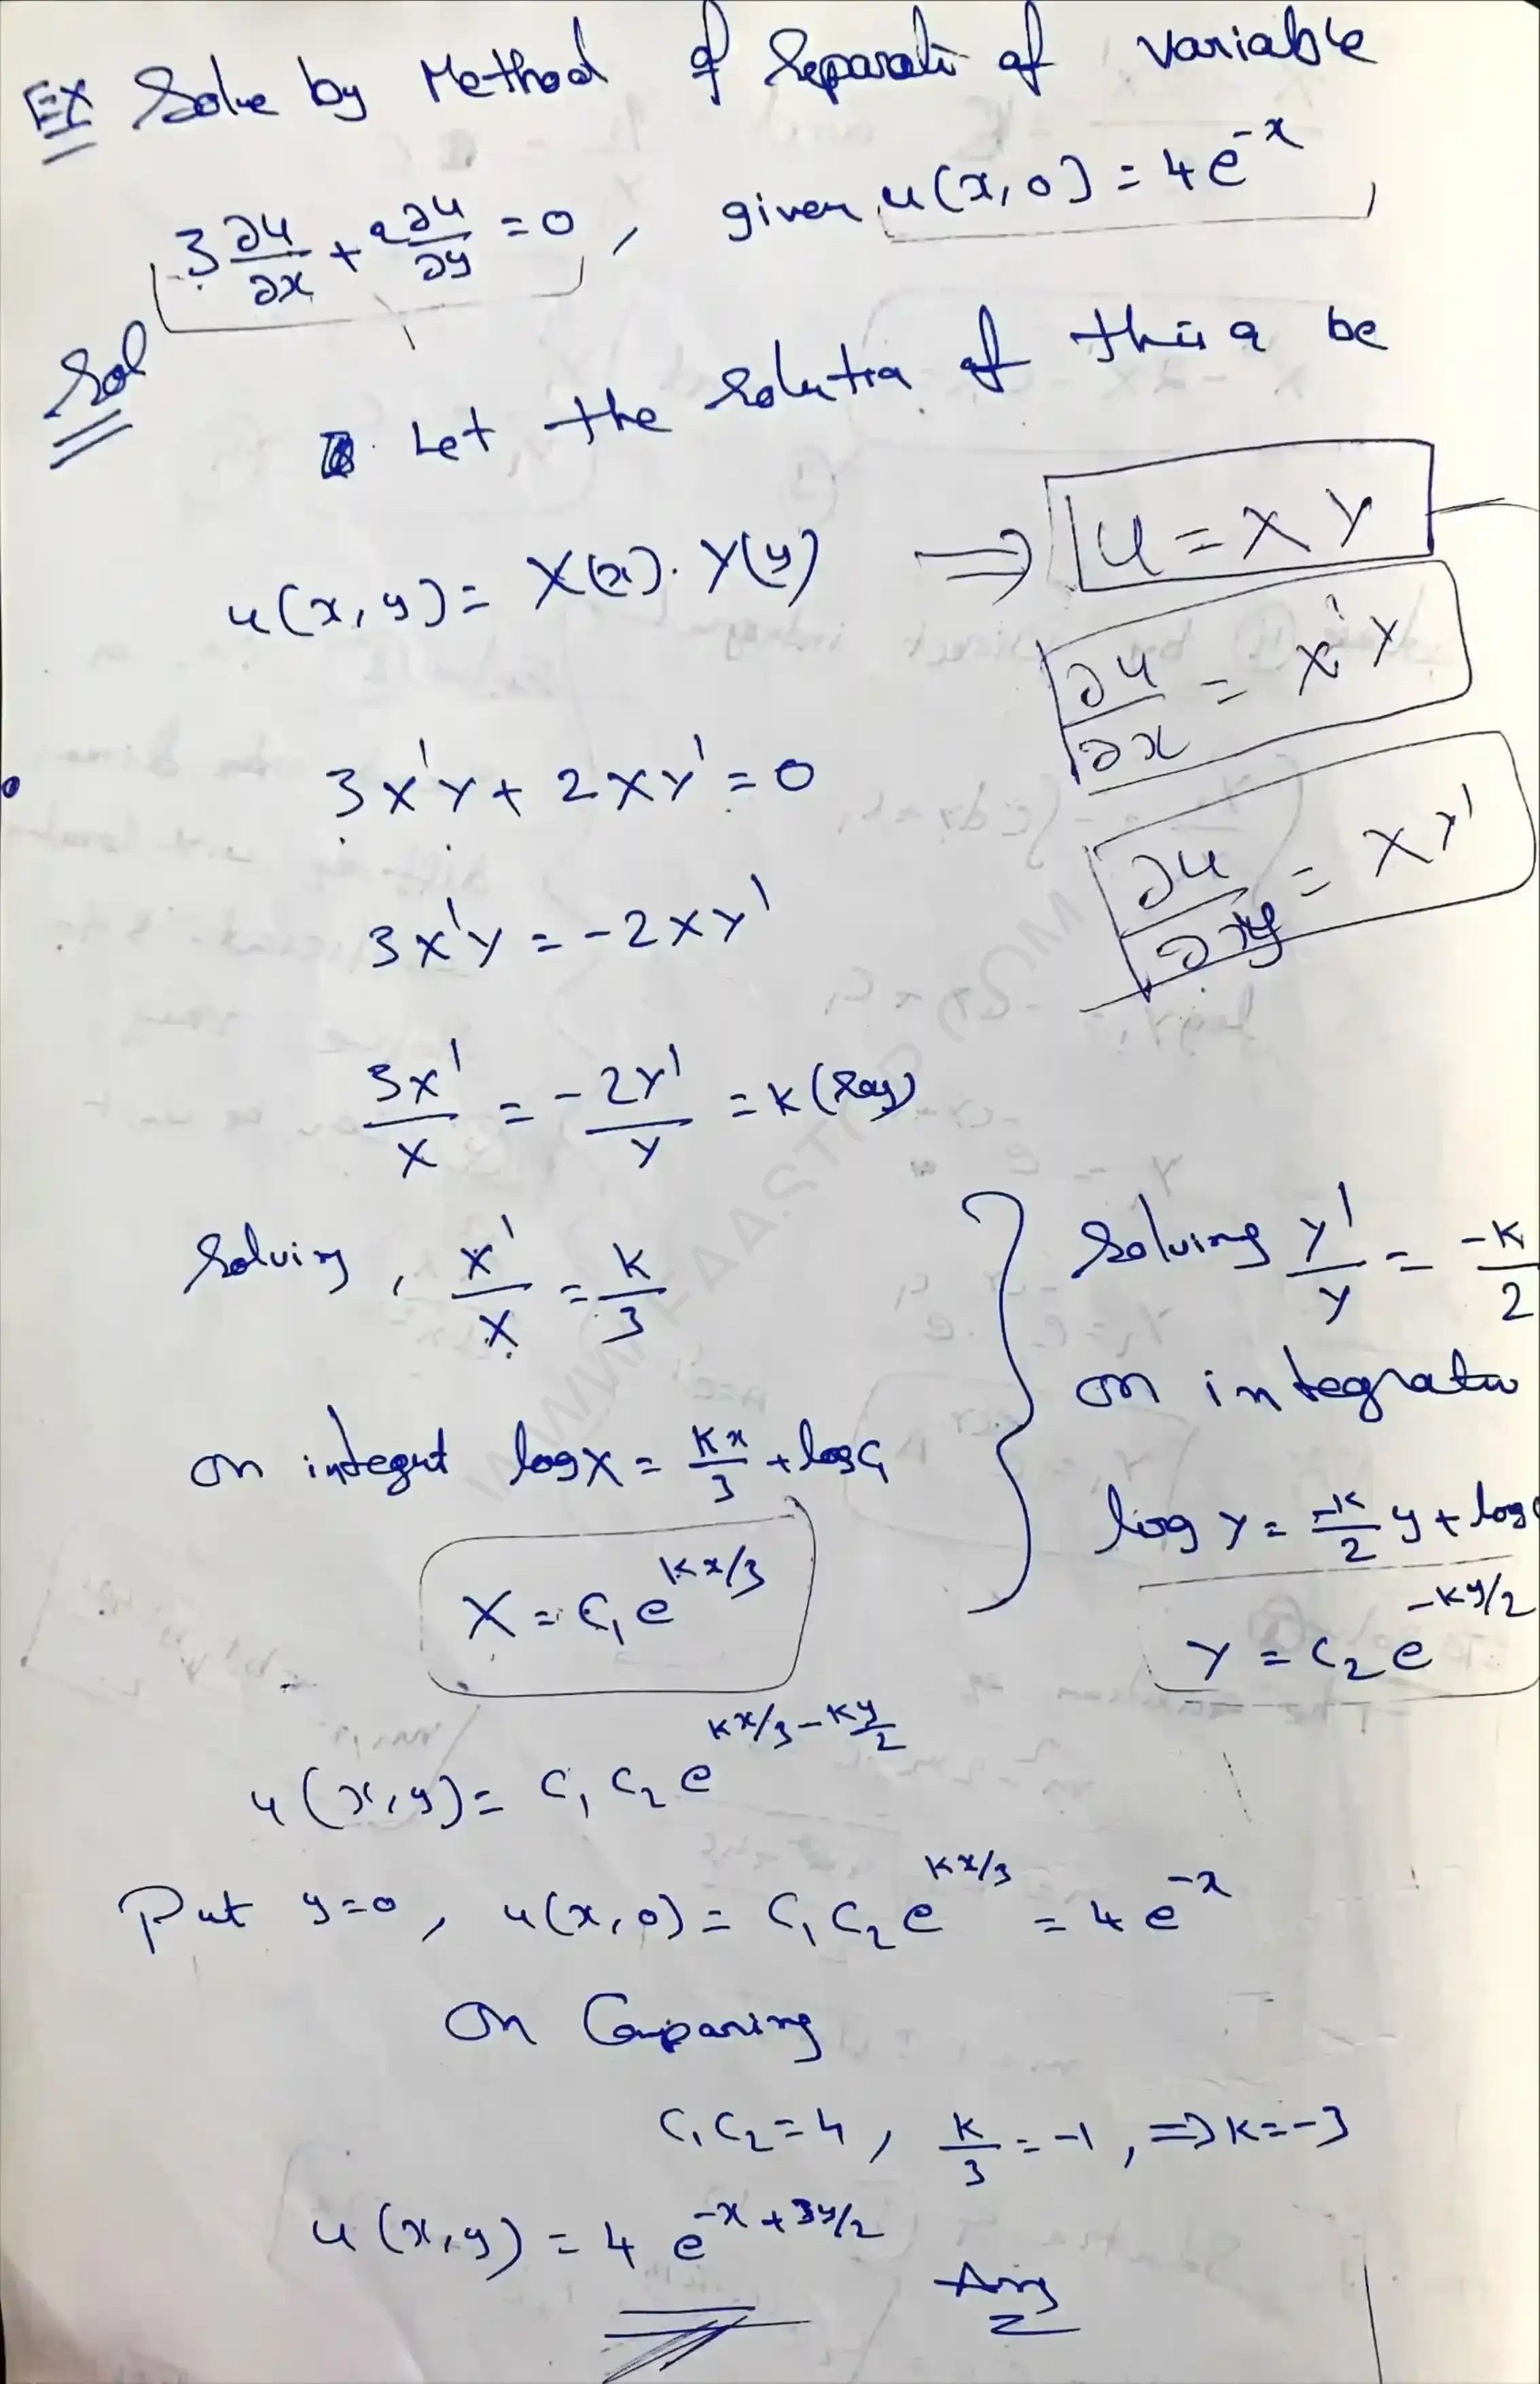 Ex Solve by Method of Separati of variable
3 ∂u/∂x + 2 ∂u/∂y = 0, given u(x,0) = 4e^{-x}
Sol
Let the solution of this q be
u(x,y) = X(x). Y(y) ⇒ u = XY
∂u/∂x = X'Y
3X'Y + 2XY' = 0
∂u/∂y = XY'
3X'Y = -2XY'
3X'/X = -2Y'/Y = k (say)
Solving, X'/X = k/3
on integrt log X = kx/3 + log c₁
X = c₁ e^{kx/3}
Solving Y'/Y = -k/2
on integratio
log Y = -k/2 y + log
Y = c₂ e^{-ky/2}
u(x,y) = c₁ c₂ e^{kx/3 - ky/2}
Put y=0, u(x,0) = c₁ c₂ e^{kx/3} = 4e^{-x}
On Comparing
c₁c₂ = 4, k/3 = -1, ⇒ k = -3
u(x,y) = 4 e^{-x + 3y/2}
Ans